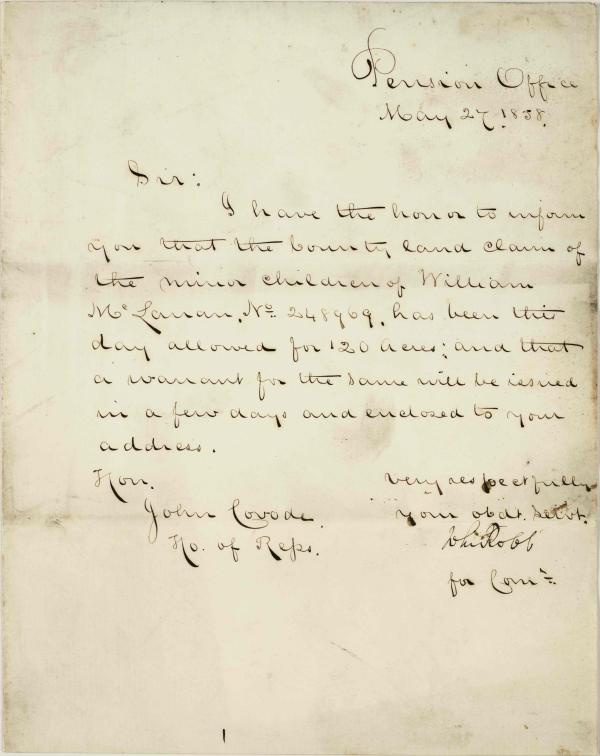 Pension Office
May 27, 1858.
Sir:
I have the honor to inform
you that the bounty land claim of
the minor children of William
McLanan, No. 248969, has been this
day allowed for 120 acres; and that
a warrant for the same will be issued
in a few days and enclosed to your
address.
Hon. very respectfully
John Covode your obdt. servt.
Ho. of Reps.
for Comr.